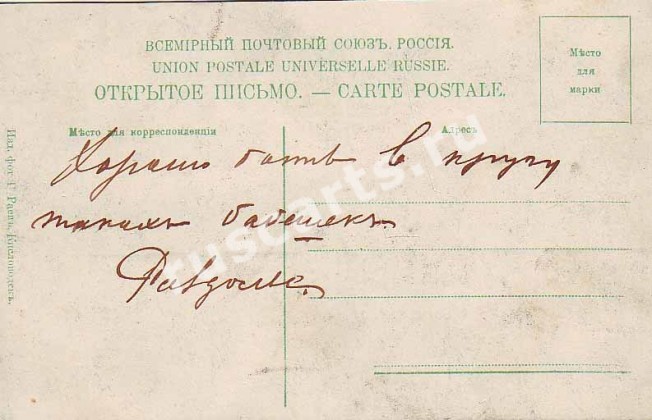 ВСЕМІРНЫЙ ПОЧТОВЫЙ СОЮЗЪ. РОССІЯ.
UNION POSTALE UNIVERSELLE RUSSIE.
ОТКРЫТОЕ ПИСЬМО. — CARTE POSTALE.
Мѣсто
для
марки
Мѣсто для корреспонденціи
Адресъ
Хорошо быть въ кругу
такихъ бабешекъ.
Изд. фот. Г. Раевъ, Кисловодскъ.
ruscarts.ru